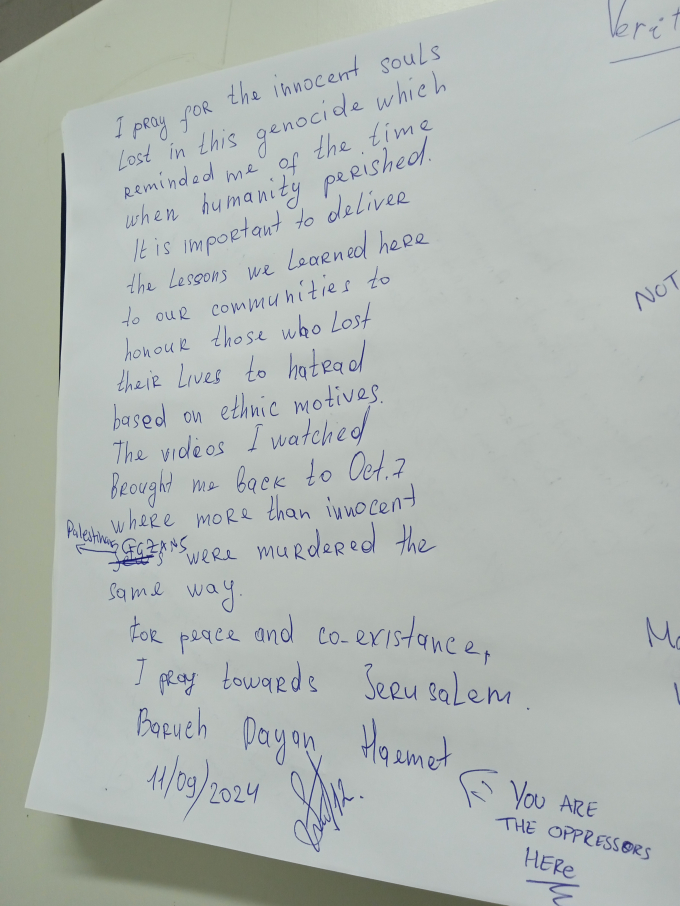 Verit
I pray for the innocent souls
Lost in this genocide which
reminded me of the time
when humanity perished.
It is important to deliver
the Lessons we Learned here
to our communities to
honour those who Lost
their Lives to hatrad
based on ethnic motives.
The videos I watched
Brought me back to Oct. 7
where more than innocent
Palestinans
were murdered the
same way.
For peace and co-existance,
I pray towards Jerusalem.
Baruch Dayan Haemet
11/09/2024
YOU ARE
THE OPPRESSORS
HERE
NOT